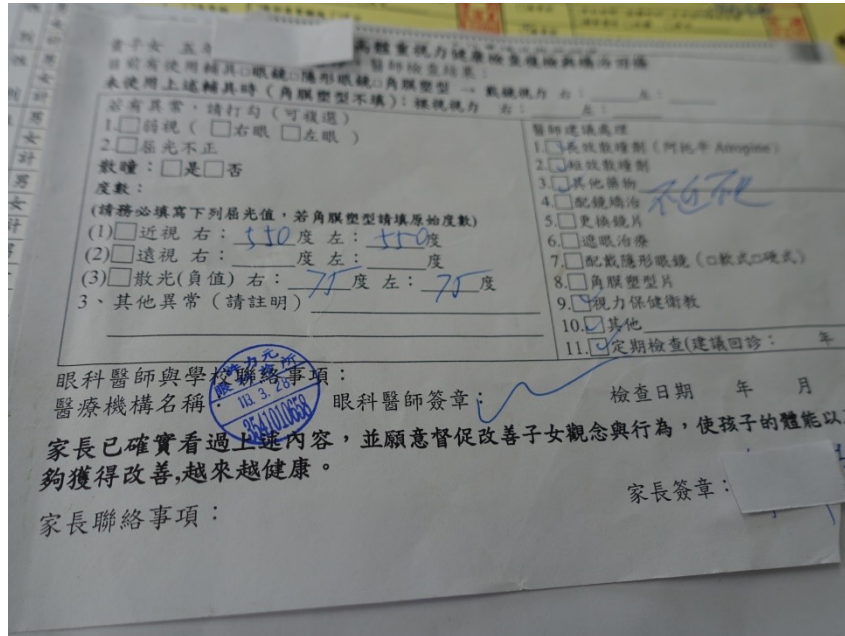 貴子女 五年 高年級重視力健康檢查複檢與矯治回條
目前有使用輔具□眼鏡□隱形眼鏡□角膜塑型 → 戴鏡視力 右： 左：
醫師檢查結果：
未使用上述輔具時（角膜塑型不填）：裸視視力 右： 左：
若有異常，請打勾（可複選）
1.□弱視（ □右眼 □左眼 ）
2.□屈光不正
散瞳：□是□否
度數：
(請務必填寫下列屈光值，若角膜塑型請填原始度數)
(1)□近視 右：550度 左：550度
(2)□遠視 右： 度 左： 度
(3)□散光(負值) 右：75度 左：75度
3、其他異常（請註明）
醫師建議處理
1.□長效散瞳劑（阿托平 Atropine）
2.□短效散瞳劑
3.□其他藥物
4.□配鏡矯治
5.□更換鏡片
6.□遮眼治療
7.□配戴隱形眼鏡（□軟式□硬式）
8.□角膜塑型片
9.□視力保健衛教
10.□其他
11.□定期檢查(建議回診： 年
眼科醫師與學校聯絡事項：
醫療機構名稱：
眼科診所
113. 3. 28
3541010658
眼科醫師簽章： 檢查日期 年 月
家長已確實看過上述內容，並願意督促改善子女觀念與行為，使孩子的體能以
夠獲得改善,越來越健康。
家長簽章：
家長聯絡事項：